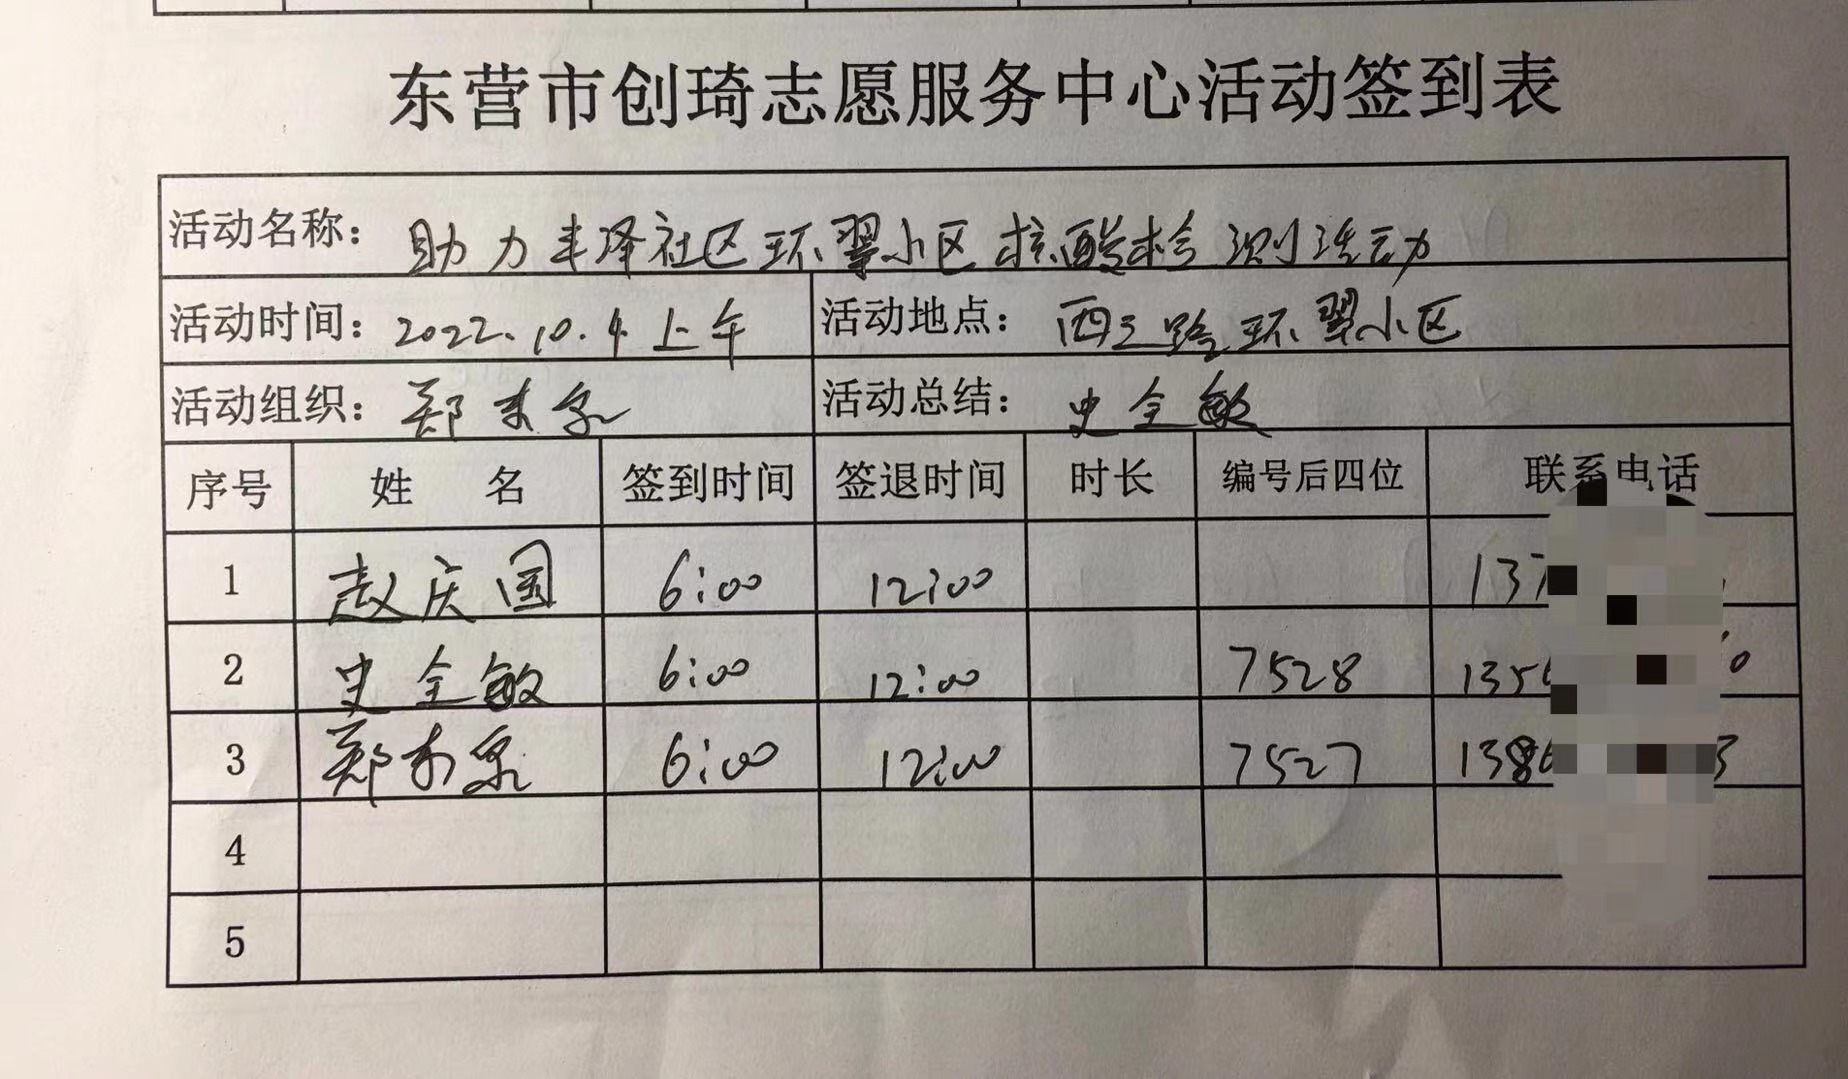 东营市创琦志愿服务中心活动签到表
活动名称：助力丰泽社区环翠小区核酸检测活动
活动时间：2022.10.4上午 活动地点：西三路环翠小区
活动组织：郑东泉 活动总结：史全敏
序号 姓名 签到时间 签退时间 时长 编号后四位 联系电话
1 赵庆国 6:00 12:00 137
2 史全敏 6:00 12:00 7528 135 0
3 郑东泉 6:00 12:00 7527 138 3
4
5